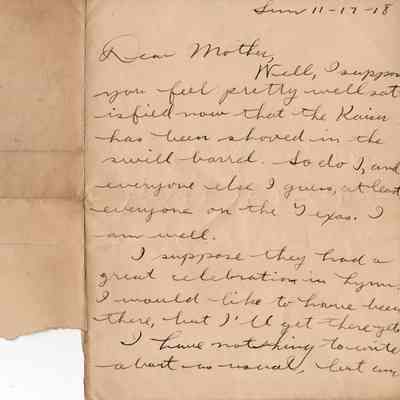 Sun 11-17-18
Dear Mother,
Well, I suppose
you feel pretty well sat
isfied now that the Kaiser
has been shoved in the
swill barrel. So do I, and
everyone else I guess, at least
everyone on the Texas. I
am well.
I suppose they had a
great celebration in Lynn,
I would like to have been
there, but I'll get there yet.
I have nothing to write
about as usual, but am